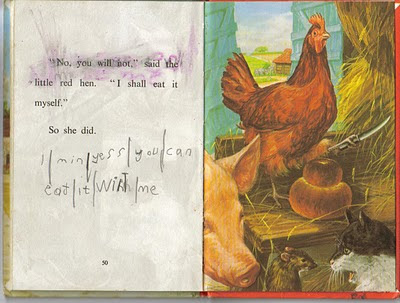 "No, you will not," said the
little red hen. "I shall eat it
myself."
So she did.
I/min/yess/you/can
eat/it/WitT/me
50